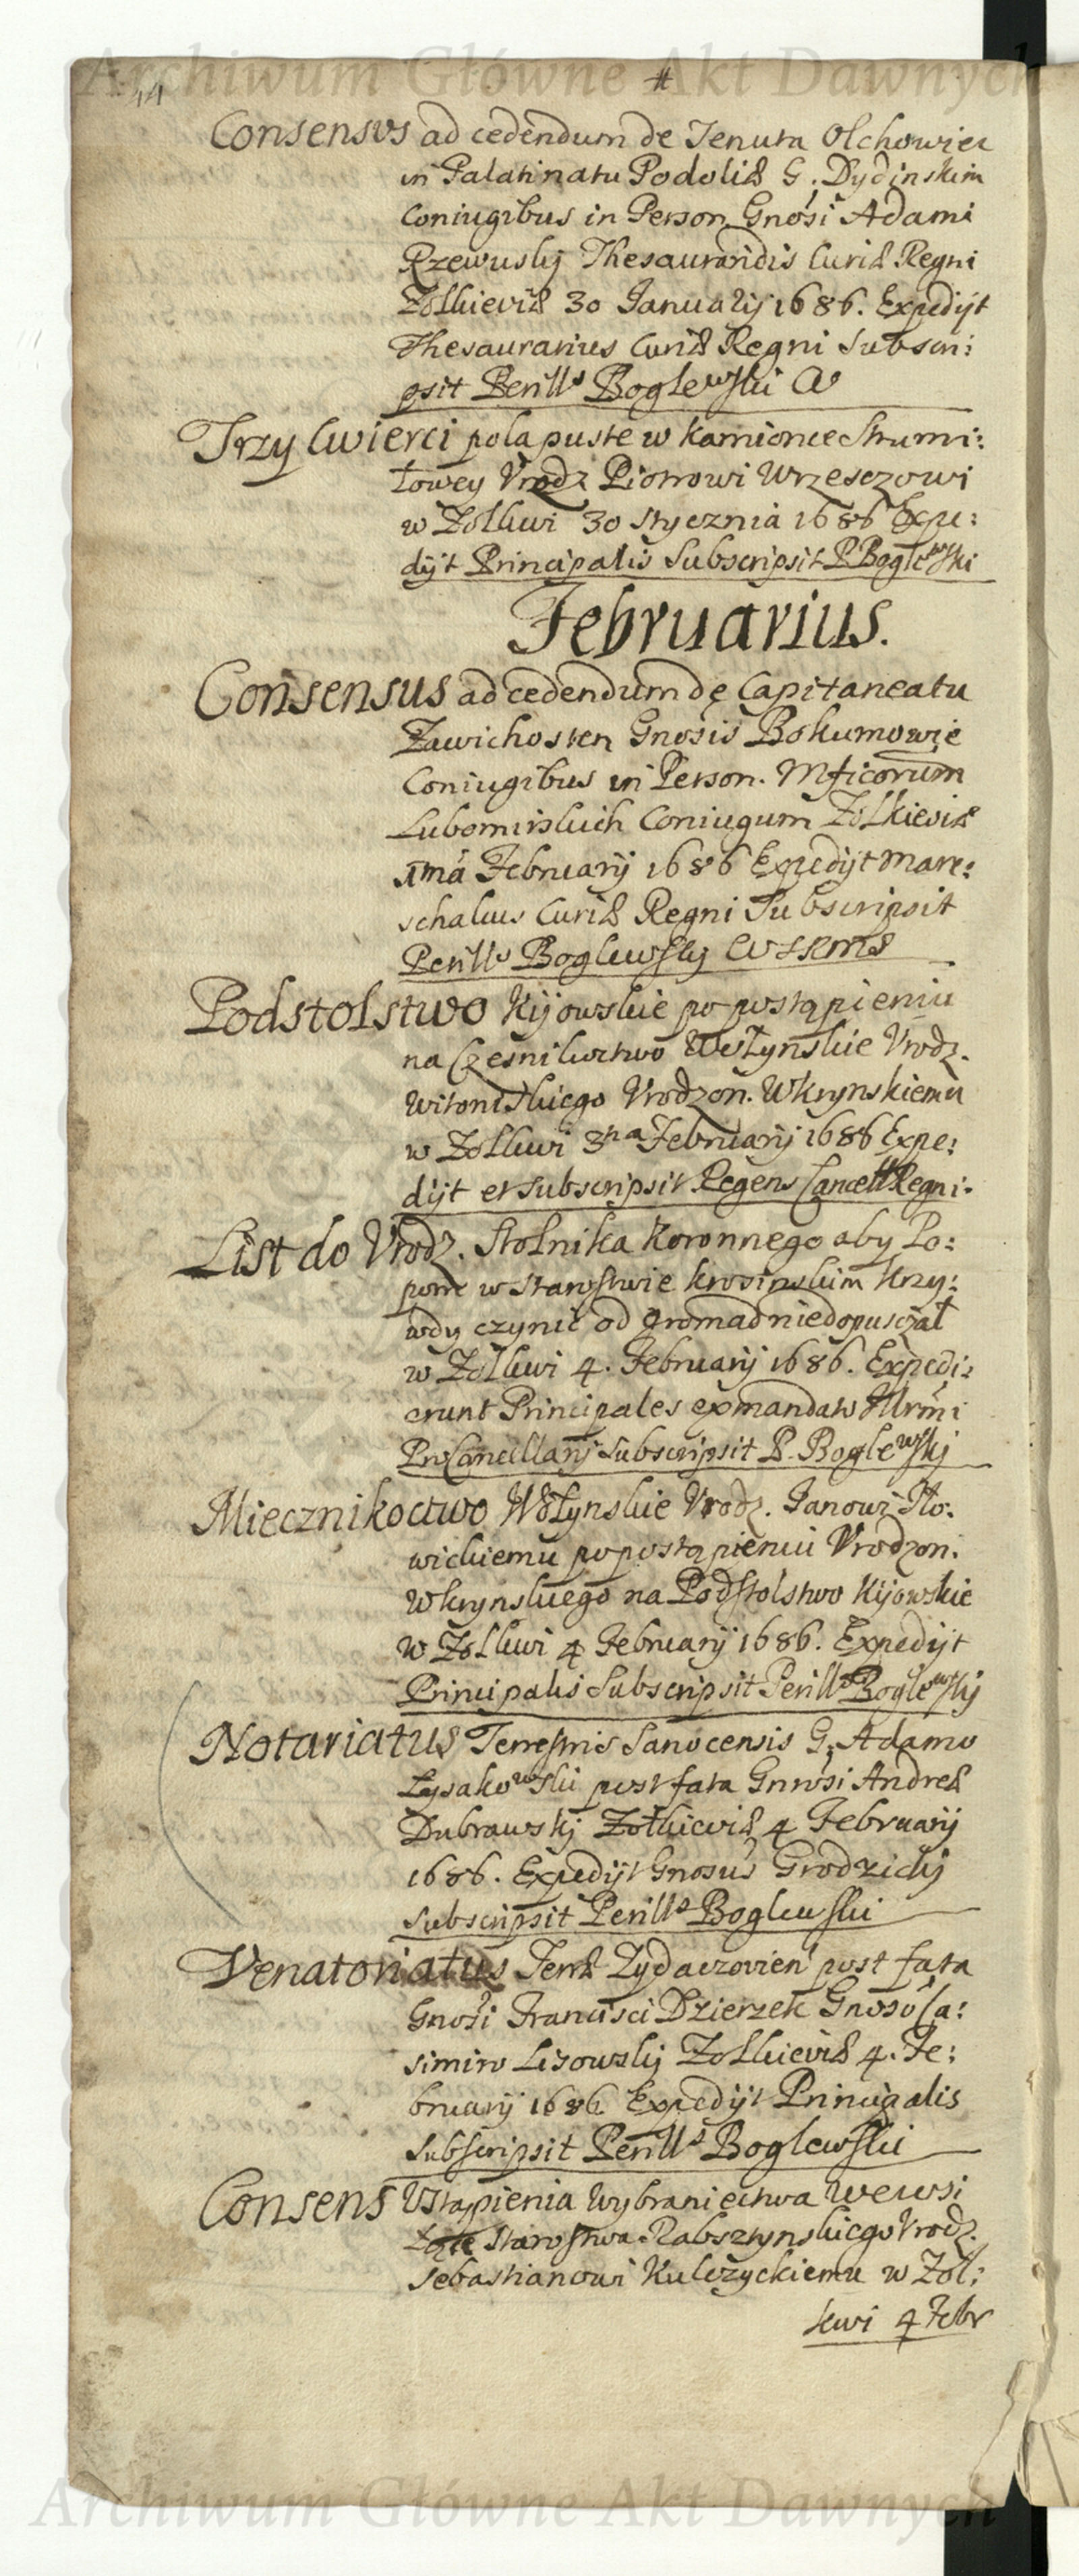 Archiwum Główne Akt Dawnych
44
#
Consensus ad cedendum de Tenuta Olchowiec
in Palatinatu Podoliæ G. Dydinskim
Coniugibus in Person Gnosi Adami
Rzewuskij Thesaurandis Curiæ Regni
Zolkieviæ 30 Januarij 1686. Expedijt
Thesaurarius Curiæ Regni Subscri:
psit Perills Boglewski
Trzy Cwierci pola puste w Kamionce Strumi:
łowey Vrodz Piotrowi Wrzesczowi
w Zolkwi 30 stycznia 1686 Expe:
dijt Principalis Subscripsit P Boglewski
Februarius.
Consensus ad cedendum de Capitaneatu
Zawichosten Gnosis Bokumowie
Coniugibus in Person. Mficorum
Lubomirskich Coniugum Zolkieviæ
1ma February 1686 Expedijt Mare:
schalcus Curiæ Regni Subscripsit
Perills Boglewskij
Podstolstwo Kijowskie po postąpieniu
na Czesnikowstwo Wołynskie Vrodz.
Witonskiego Vrodzon. Wkrynskiemu
w Zolkwi 3na February 1686 Expe:
dijt et subscripsit Regens Cancell Regni.
List do Vrodz. Stolnika Koronnego aby Po:
porze w Starostwie krosinskim krzy:
wdy czynic od gromad niedopusczał
w Zolkwi 4. February 1686. Expedi:
erunt Principales ex mandato Illrmi
ProCancellarij subscripsit P. Boglewskj
Miecznikoctwo Wołynskie Vrodz. Janowi Iło:
wickiemu po postąpieniu Vrodzon.
Wkrynskiego na Podstolstwo Kijowskie
w Zolkwi 4 February 1686. Expedijt
Principalis Subscripsit Perills Boglewskij
Notariatus Terrestris Sanocensis G. Adamo
Lysakowski post fata Gnrosi Andreæ
Dubrawskj Zołkieviæ 4 February
1686. Expedijt Gnosus Grodzickj
subscripsit Perills Boglewski
Venatoriatus Terræ Zydaczovien post fata
Gnosi Francisci Dzierzek Gnoso Ca:
simiro Lisowskij Zolkieviæ 4. Fe:
bruarij 1686 Expedijt Principalis
Subscripsit Perills Boglewski
Consens Vstąpienia Wybraniectwa we wsi
Starostwa Rabsztynskiego Vrodz.
Sebastianowi Kulczyckiemu w Zoł:
kwi 4 Febr
Archiwum Główne Akt Dawnych